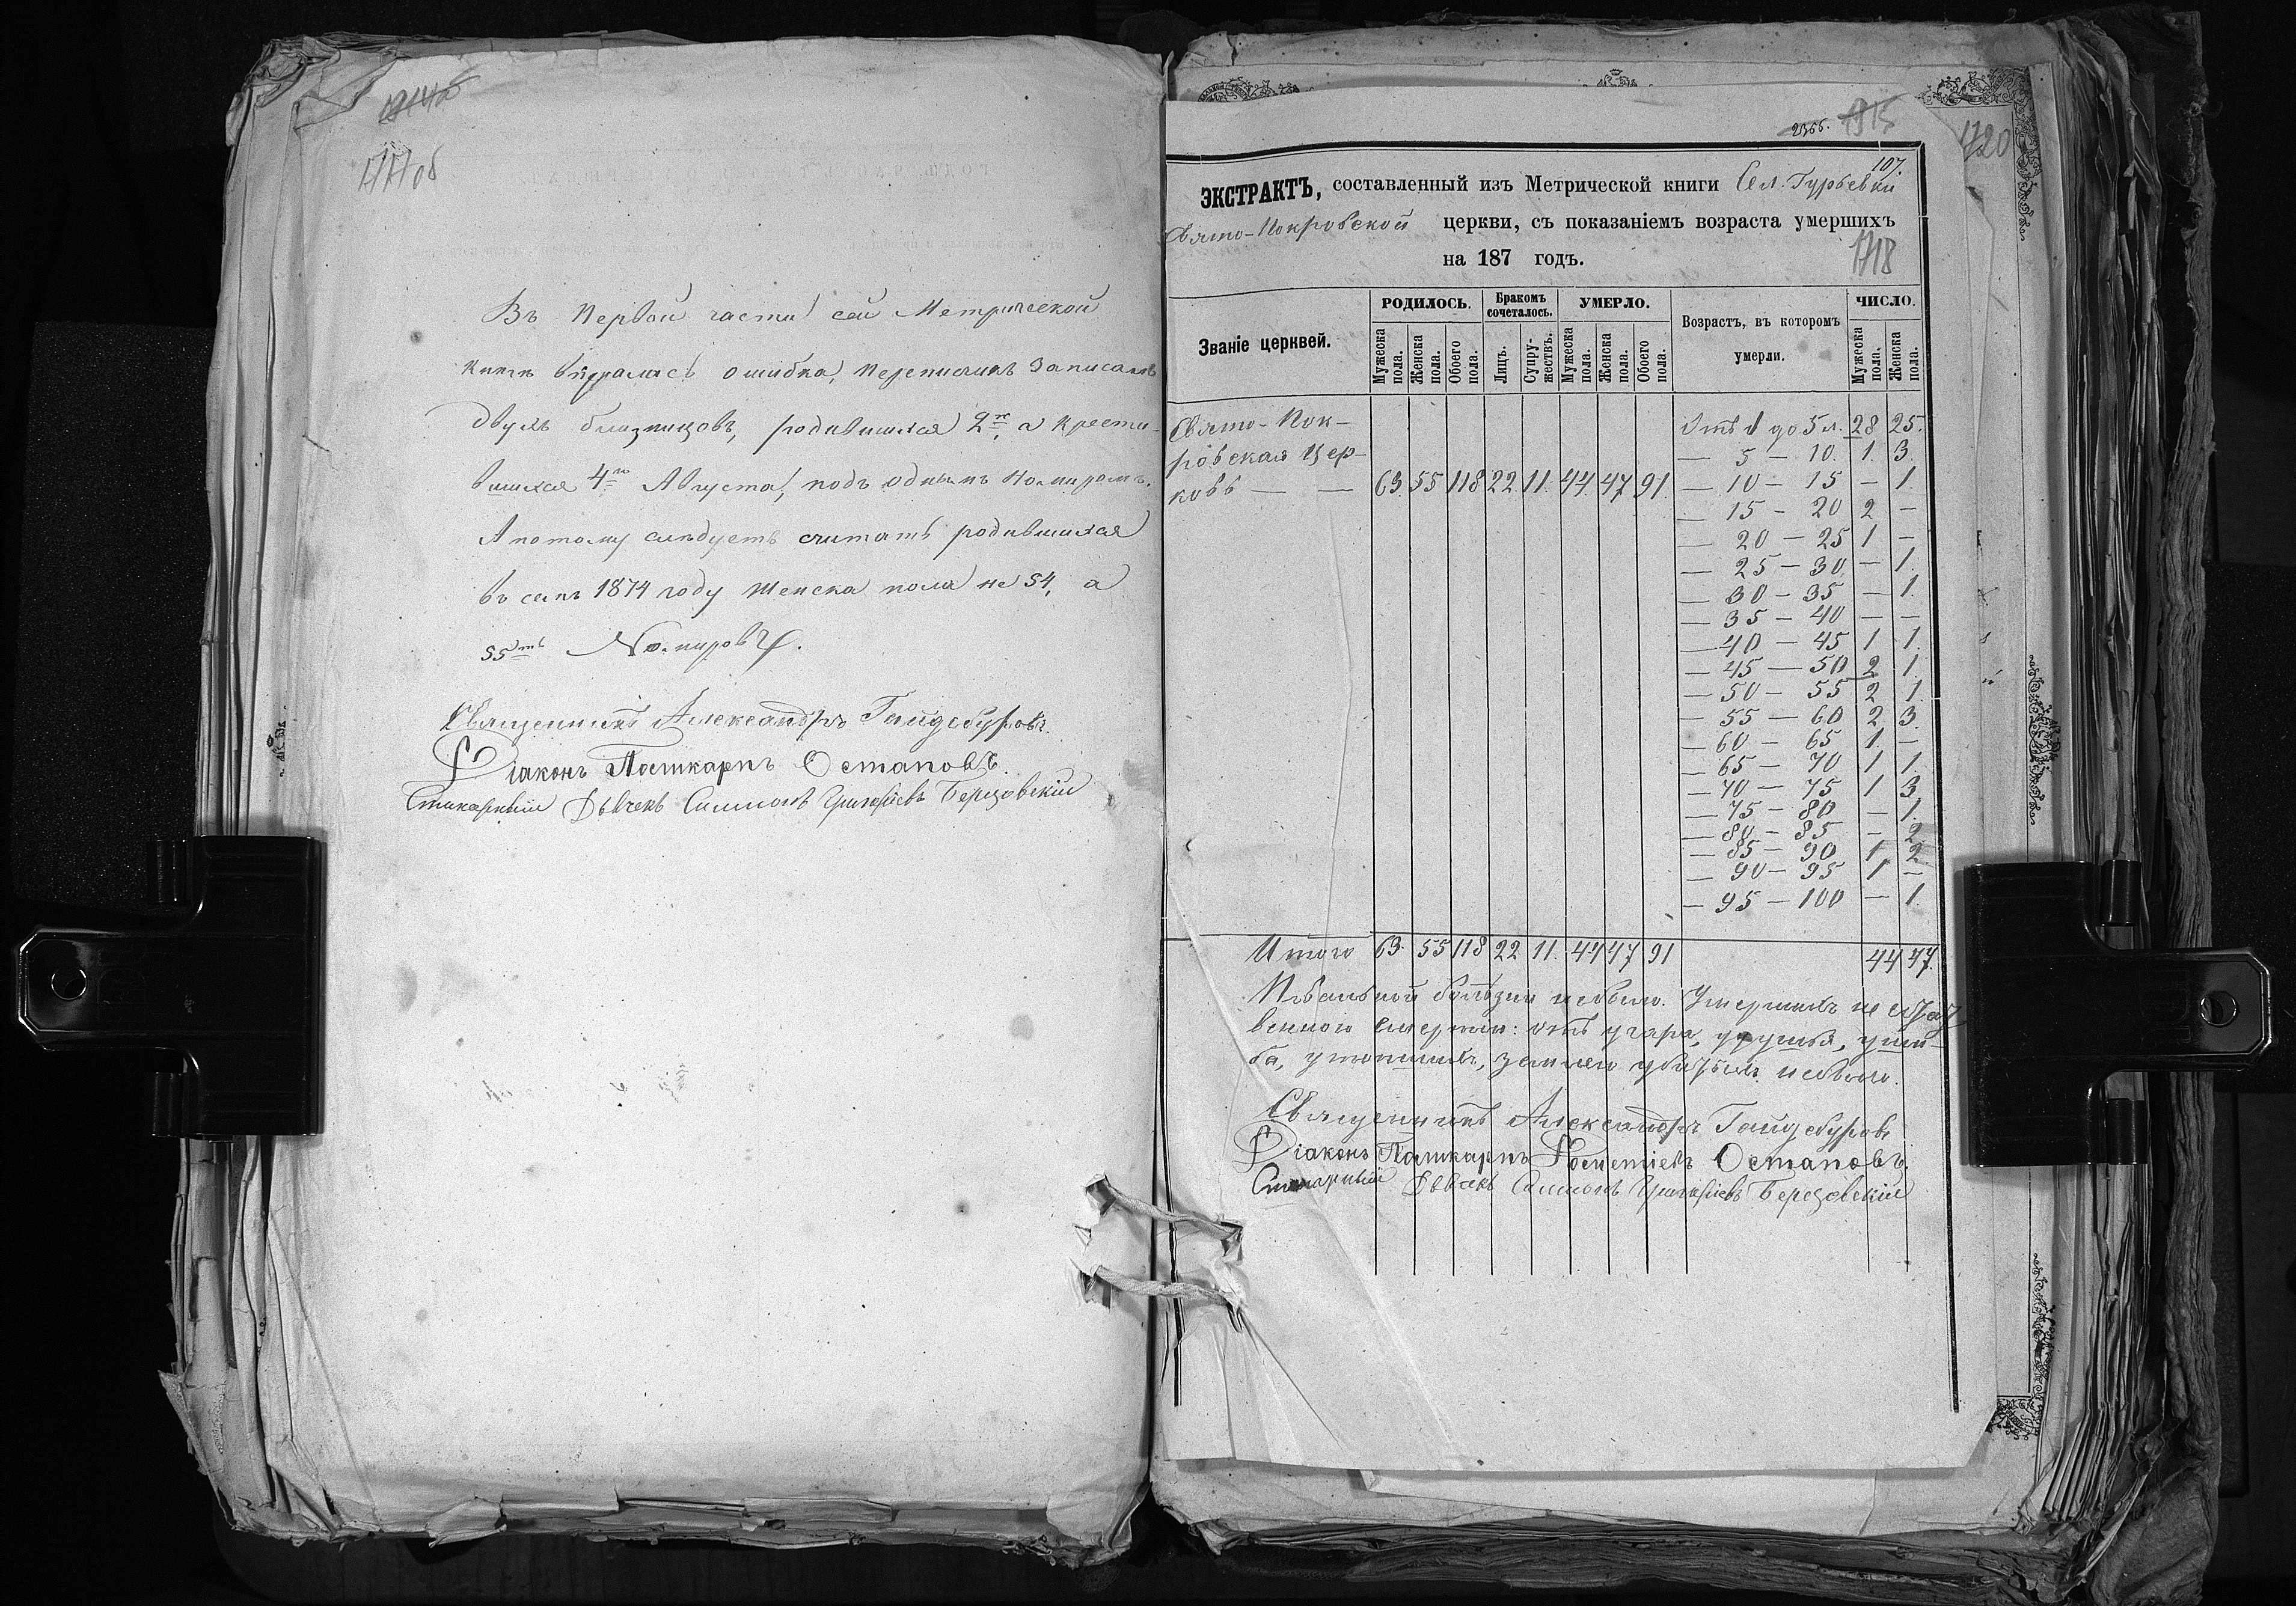 1717 об
Въ первой части сей Метрической
книги вкралась ошибка, переписчикъ записалъ
двухъ близнецовъ, родившихся 2го, а крести-
вшихся 4го Августа, подъ однимъ номиромъ.
А потому слѣдуетъ считать родившихся
въ семъ 1874 году женска пола не 54, а
55ть Номировъ.
Священникъ Александръ Гайдебуровъ.
Діаконъ Поликарпъ Остаповъ.
Стихарный Дьячекъ Симеонъ Григоріевъ Березовскій
2366. 1915
1720
107.
ЭКСТРАКТЪ, составленный изъ Метрической книги Сел. Гурьевки
Свято-Покровской церкви, съ показаніемъ возраста умершихъ
на 187 годъ.
1718
Званіе церквей. РОДИЛОСЬ. Бракомъ сочеталось. УМЕРЛО. Возрастъ, въ которомъ умерли. ЧИСЛО.
Мужеска пола. Женска пола. Обоего пола. Лицъ. Супружествъ. Мужеска пола. Женска пола. Обоего пола. Мужеска пола. Женска пола.
Свято-Пок-
ровская Цер-
ковь — — 63. 55 118 22. 11. 44. 47 91.
Отъ 1 до 5 л. 28 25.
— 5 — 10. 1. 3.
— 10 — 15 — 1.
— 15 — 20 2 —
— 20 — 25 1 —
— 25 — 30 — 1.
— 30 — 35 — 1.
— 35 — 40 — —
— 40 — 45 1 1.
— 45 — 50 2 1.
— 50 — 55 2 1.
— 55 — 60 2 3.
— 60 — 65 1 —
— 65 — 70 1 1.
— 70 — 75 1 3
— 75 — 80 — 1.
— 80 — 85 — 2
— 85 — 90 1 2
— 90 — 95 1 —
— 95 — 100 — 1.
Итого 63. 55 118 22 11. 44 47 91 44 47.
Повальной болѣзни небыло. Умершихъ не
венною смертію: отъ угара, удушья, уши-
ба, утопшихъ, убитыхъ небыло.
Священникъ Александръ Гайдебуровъ
Діаконъ Поликарпъ Остаповъ.
Стихарный Дьячекъ Симеонъ Григоріевъ Березовскій